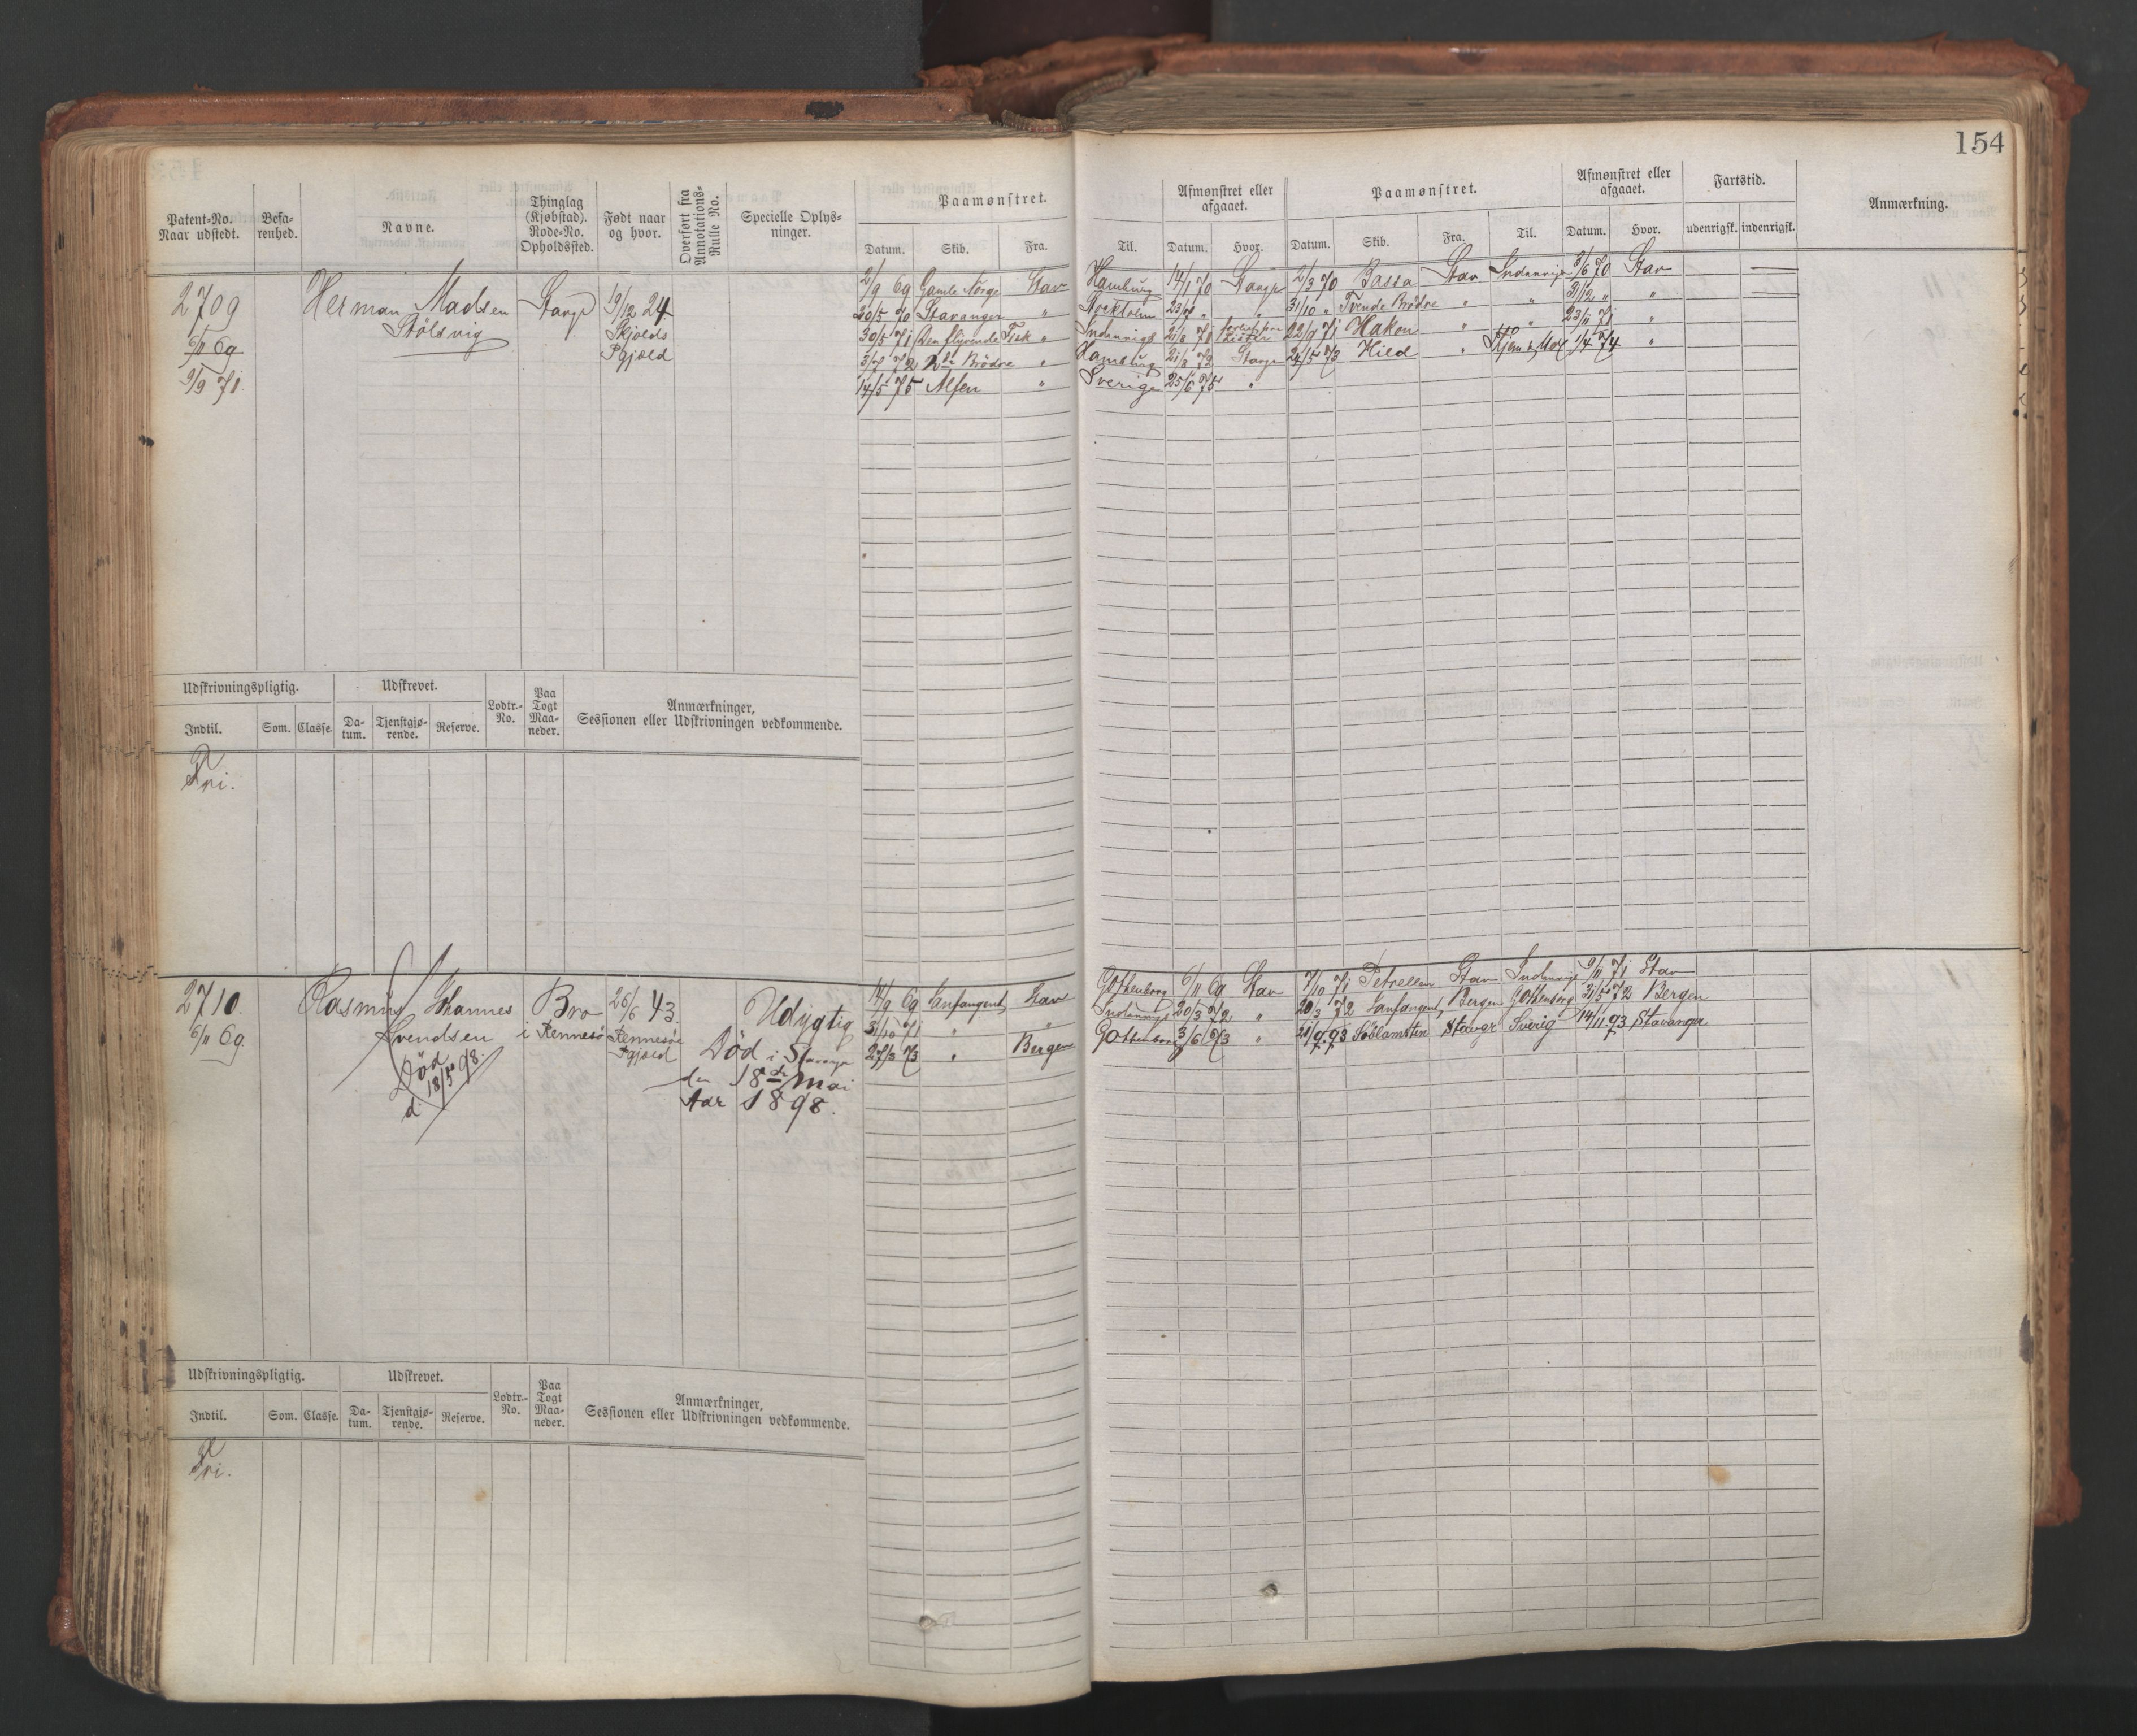 154
Patent-No. Naar udstedt.
Befarenhed.
Navne.
Thinglag (Kjøbstad). Rode-No. Opholdssted.
Født naar og hvor.
Overført fra Annotations-Rulle No.
Specielle Oplysninger.
Paamønstret.
Datum. Skib. Fra. Til.
Afmønstret eller afgaaet.
Datum. Hvor.
Paamønstret.
Datum. Skib. Fra. Til.
Afmønstret eller afgaaet.
Datum. Hvor.
Fartstid.
udenrigsk. indenrigsk.
Anmærkning.
2709
6/11 69
9/9 71
Herman Madsen
Stölsvig
19/12 24
Skjolds
Pgjæld
2/9 69 Gamle Norge Stav Hamburg 14/1 70 2/3 70 Bassa Stav 3/6 70 Stav
20/5 70 Stavanger " Stockholm 23/7 " " 31/10 " Tvende Brödre " " 31/12 " "
30/5 71 Den flyvende Fisk " 21/8 71 22/9 71 Hakon " " 23/11 71 "
3/7 72 Brödre " Hamburg 21/8 72 24/5 73 Hild " 1/4 74 "
14/5 75 Alfen " Sverige 25/6 75 "
Udskrivningspligtig.
Indtil. Som. Classe.
Udskrevet.
Datum. Tjenstgjørende. Reserve.
Lodtr.-No.
Paa Togt Maaneder.
Anmærkninger, Sessionen eller Udskrivningen vedkommende.
Fri.
2710.
6/11 69.
Rasmus Johannes
Svendsen
Död
d. 18/5 98.
Bro
i Rennesö
26/6 43.
Rennesöe
Pgjæld
Udygtig
Död i
den 18de Mai
Aar 1898.
14/9 69 Sanfangent Stav Gothenborg 6/11 69 Stav 7/10 71 Petrellen Stav 9/11 71 Stav
" " 20/3 72 " 20/3 72 Sanfangent Bergen Gothenborg 31/5 72 Bergen
27/3 73 " Bergen Gothenborg 3/6 73 " 21/9.93 Stavgr Sverig 14/11.93 Stavanger
Udskrivningspligtig.
Indtil. Som. Classe.
Udskrevet.
Datum. Tjenstgjørende. Reserve.
Lodtr.-No.
Paa Togt Maaneder.
Anmærkninger, Sessionen eller Udskrivningen vedkommende.
Fri.